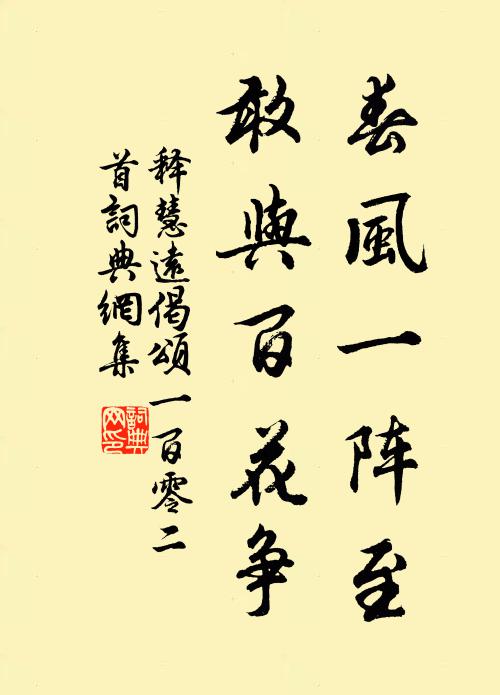 春風一阵至
敢與百花争
释慧遠偈頌一百零二
首詞典網集
詞典网印